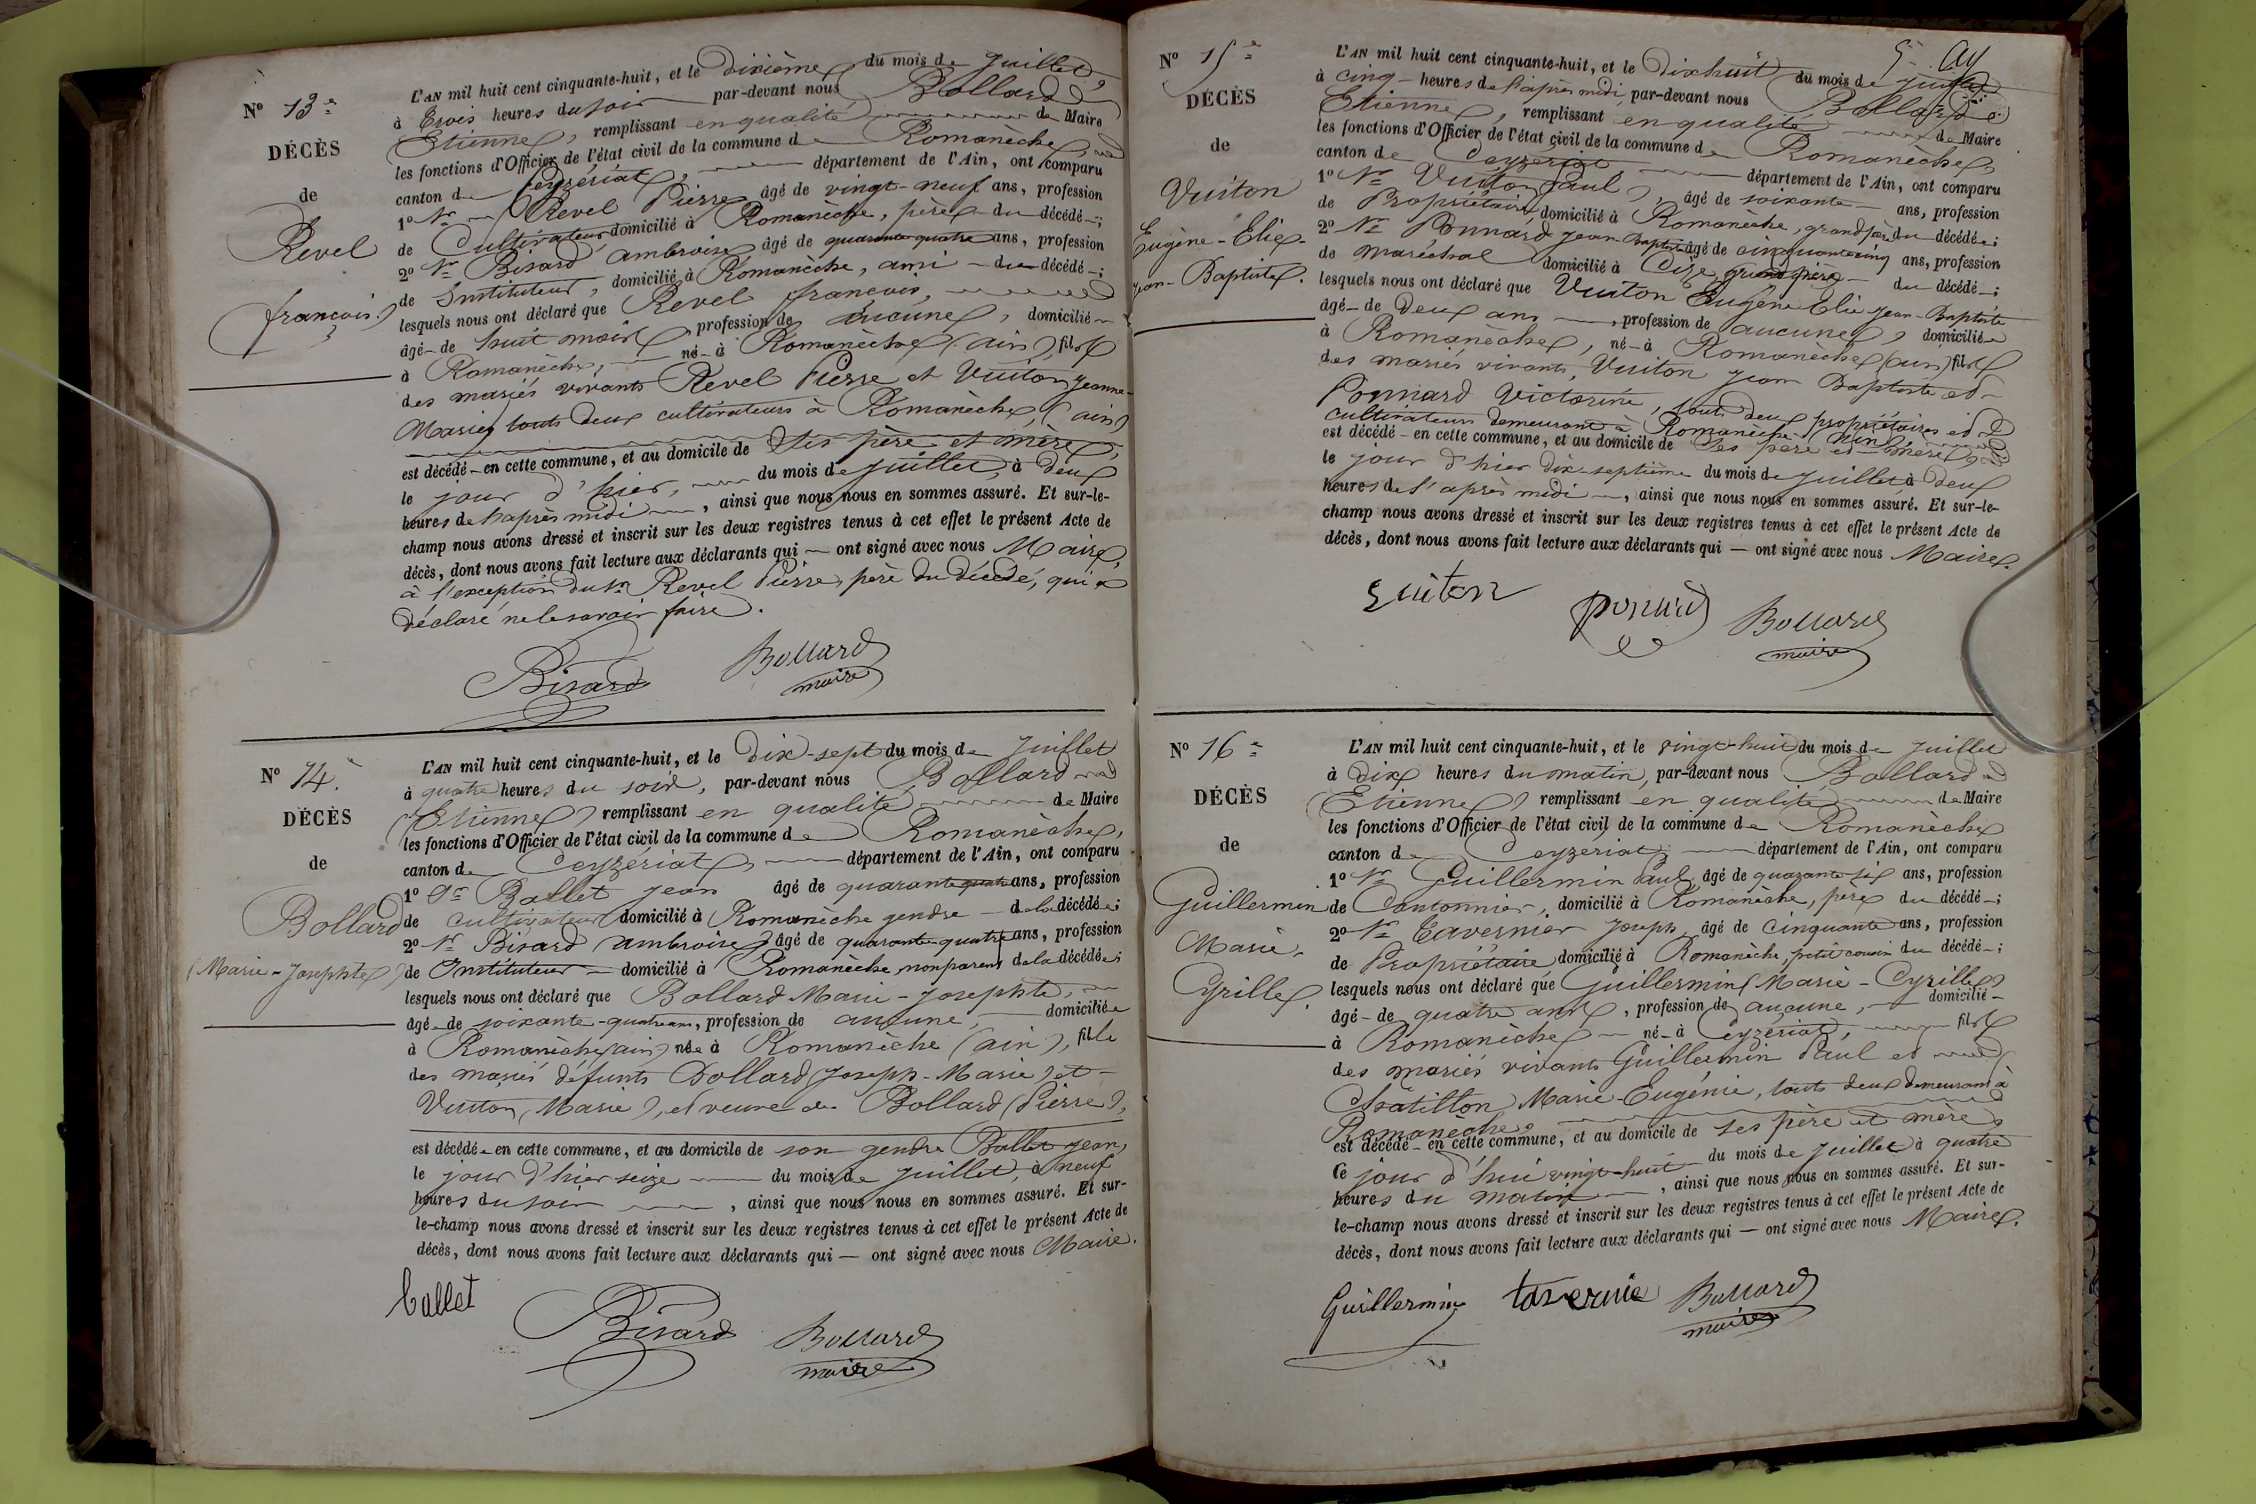 N° 13.e
DÉCÈS
de
Revel
françois
L'AN mil huit cent cinquante-huit, et le dixième du mois de Juillet,
à trois heures du soir par-devant nous Bollard
Etienne, remplissant en qualité de Maire
les fonctions d'Officier de l'état civil de la commune de Romanèche,
canton de Ceyzériat, département de l'Ain, ont comparu
1° Sr Revel Pierre âgé de vingt-neuf ans, profession
de Cultivateur domicilié à Romanèche, père du décédé ;
2° Sr Bisard ambroise âgé de quarante quatre ans, profession
de Instituteur, domicilié à Romanèche, ami du décédé ;
lesquels nous ont déclaré que Revel françois,
âgé de huit mois, profession de aucune, domicilié
à Romanèche, né à Romanèche (ain), fils
des mariés vivants Revel Pierre et Vuiton Jeanne-
Marie, touts deux cultivateurs à Romanèche, (ain)
est décédé en cette commune, et au domicile de ses père et mère,
le jour d'hier, du mois de Juillet, à deux
heures de l'après midi, ainsi que nous nous en sommes assuré. Et sur-le-
champ nous avons dressé et inscrit sur les deux registres tenus à cet effet le présent Acte de
décès, dont nous avons fait lecture aux déclarants qui ont signé avec nous Maire,
à l'exception du Sr Revel Pierre, père du décédé, qui a
déclaré ne le savoir faire.
Bisard Bollard
maire
N° 14.
DÉCÈS
de
Bollard
(Marie-Josephte)
L'AN mil huit cent cinquante-huit, et le dix-sept du mois de Juillet
à quatre heures du soir, par-devant nous Bollard
(Etienne) remplissant en qualité de Maire
les fonctions d'Officier de l'état civil de la commune de Romanèche,
canton de Ceyzériat, département de l'Ain, ont comparu
1° Sr Ballet Jean âgé de quarante quatre ans, profession
de cultivateur domicilié à Romanèche gendre de la décédée ;
2° Sr Bisard (ambroise) âgé de quarante-quatre ans, profession
de Instituteur domicilié à Romanèche, non parent de la décédée ;
lesquels nous ont déclaré que Bollard Marie-Josephte,
âgée de soixante-quatre ans, profession de aucune, domiciliée
à Romanèche (ain) née à Romanèche (ain), fille
des mariés défunts Bollard (Joseph-Marie) et
Vuiton (Marie), et veuve de Bollard (Pierre),
est décédée en cette commune, et au domicile de son gendre Ballet Jean,
le jour d'hier seize du mois de Juillet, à neuf
heures du soir, ainsi que nous nous en sommes assuré. Et sur-
le-champ nous avons dressé et inscrit sur les deux registres tenus à cet effet le présent Acte de
décès, dont nous avons fait lecture aux déclarants qui — ont signé avec nous Maire.
ballet Bisard Bollard
maire
N° 15.e
DÉCÈS
de
Vuiton
Eugène-Elie-
Jean-Baptiste.
L'AN mil huit cent cinquante-huit, et le dix huit du mois de Juillet
à cinq heures de l'après midi, par-devant nous Bollard
Etienne, remplissant en qualité de Maire
les fonctions d'Officier de l'état civil de la commune de Romanèche,
canton de Ceyzériat département de l'Ain, ont comparu
1° Sr Vuiton Paul, âgé de soixante ans, profession
de Propriétaire, domicilié à Romanèche, grand père du décédé ;
2° Sr Ponnard Jean Baptiste âgé de cinquante cinq ans, profession
de maréchal domicilié à Cize, grand père du décédé ;
lesquels nous ont déclaré que Vuiton Eugène Elie Jean-Baptiste
âgé de deux ans, profession de aucune, domicilié
à Romanèche, né à Romanèche (ain) fils
des mariés vivants, Vuiton Jean Baptiste et
Ponnard Victorine, touts deux propriétaires et
cultivateurs demeurant à Romanèche (ain)
est décédé en cette commune, et au domicile de ses père et mère,
le jour d'hier dix-septième du mois de Juillet à deux
heures de l'après midi, ainsi que nous nous en sommes assuré. Et sur-le-
champ nous avons dressé et inscrit sur les deux registres tenus à cet effet le présent Acte de
décès, dont nous avons fait lecture aux déclarants qui — ont signé avec nous Maire.
Vuiton Ponard Bollard
maire
N° 16.e
DÉCÈS
de
Guillermin
Marie-
Cyrille.
L'AN mil huit cent cinquante-huit, et le vingt-huit du mois de Juillet
à dix heures du matin, par-devant nous Bollard
(Etienne) remplissant en qualité de Maire
les fonctions d'Officier de l'état civil de la commune de Romanèche
canton de Ceyzériat, département de l'Ain, ont comparu
1° Sr Guillermin Paul, âgé de quarante six ans, profession
de Cantonnier, domicilié à Romanèche, père du décédé ;
2° Sr Tavernier Joseph âgé de cinquante ans, profession
de Propriétaire domicilié à Romanèche, petit cousin du décédé ;
lesquels nous ont déclaré que Guillermin (Marie-Cyrille)
âgé de quatre ans, profession de aucune, domicilié
à Romanèche né à Ceyzériat, fils
des mariés vivants Guillermin Paul et
Chatillon Marie-Eugénie, touts deux demeurant à
Romanèche,
est décédé en cette commune, et au domicile de ses père et mère,
Ce jour d'hui vingt-huit du mois de Juillet à quatre
heures du matin, ainsi que nous nous en sommes assuré. Et sur-
le-champ nous avons dressé et inscrit sur les deux registres tenus à cet effet le présent Acte de
décès, dont nous avons fait lecture aux déclarants qui — ont signé avec nous Maire.
Guillermin tavernie Bollard
maire